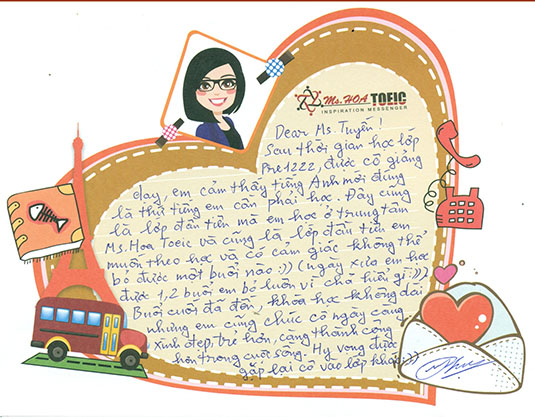 Ms.HOA TOEIC
INSPIRATION MESSENGER
Dear Ms. Tuyến!
Sau thời gian học lớp
Pre 1222, được cô giảng
dạy, em cảm thấy tiếng Anh mới đúng
là thứ tiếng em cần phải học. Đây cũng
là lớp đầu tiên mà em học ở trung tâm
Ms.Hoa Toeic và cũng là lớp đầu tiên em
muốn theo học và có cảm giác không thể
bỏ được một buổi nào :)) (ngày xưa em học
được 1,2 buổi em bỏ luôn vì chả hiểu gì :)))
Buổi cuối đã đến, khóa học không dài
nhưng em cũng chúc cô ngày càng
xinh đẹp, trẻ hơn, càng thành công
hơn trong cuộc sống. Hy vọng được
gặp lại cô vào lớp khác :))